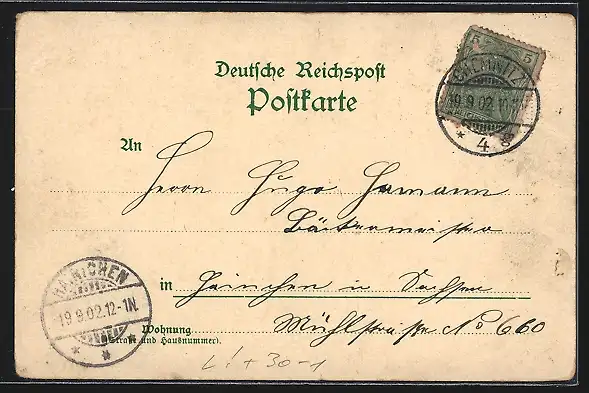 Deutsche Reichspost
Postkarte
5 5
CHEMNITZ
19.9.02.
* 4 g
An
Herrn Hugo Hamann
Bäckermeister
in Hainichen in Sachsen
HAINICHEN
19.9.02.12-1N.
* * *
Wohnung
(Straße und Hausnummer).
Mühlstraße No 660
L! + 30-1